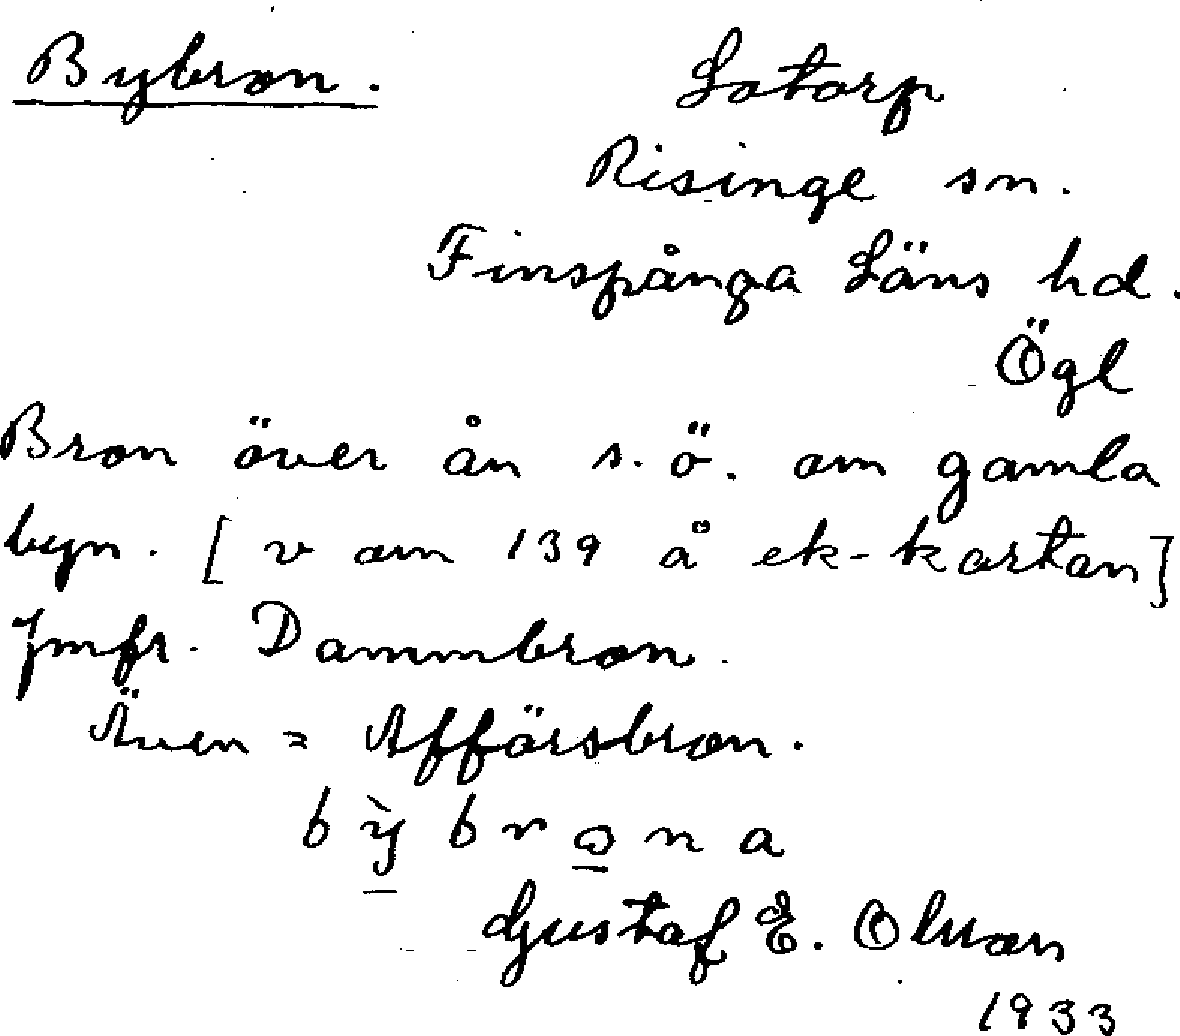 Bybron. Lotorp
Risinge sn.
Finspånga Läns hd.
Ögl
Bron över ån s.ö. om gamla
byn. [v om 139 å ek-kartan]
Jmfr. Dammbron.
Även = Affärsbron.
bỳbrona
Gustaf E. Olsson
1933